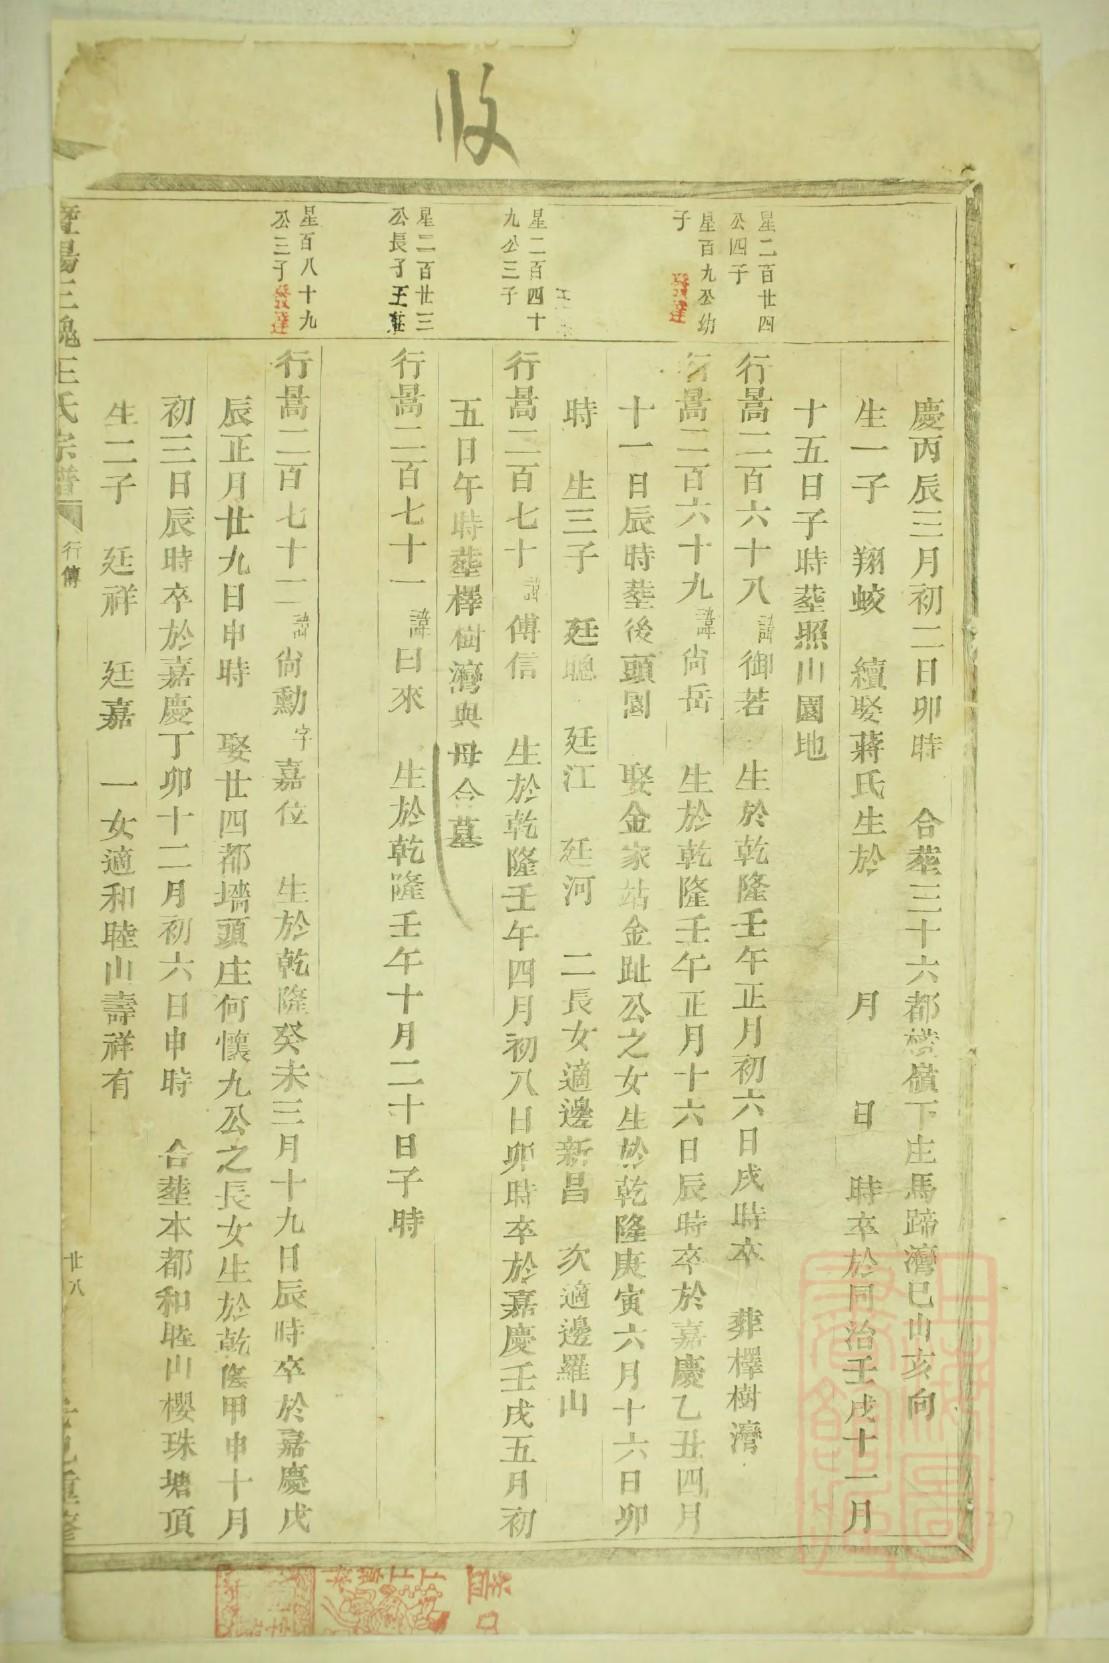 收
慶丙辰三月初二日卯時　合塟三十六都橫嶺下庄馬蹄灣巳山亥向
生一子　翔蛟　續娶蔣氏生於　月　日　時卒於同治壬戌十一月
十五日子時塟照山園地
星二百廿四公四子
行暠二百六十八諱御若　生於乾隆壬午正月初六日戌時卒　葬檡樹灣
星百九公幼子發達
行暠二百六十九諱尙岳　生於乾隆壬午正月十六日辰時卒於嘉慶乙丑四月
十一日辰時塟後頭園　娶金家站金趾公之女生於乾隆庚寅六月十六日卯
時　生三子　廷聰　廷江　廷河　二長女適邊新昌　次適邊羅山
星二百四十九公三子
行暠二百七十諱傅信　生於乾隆壬午四月初八日卯時卒於嘉慶壬戌五月初
五日午時塟檡樹灣與母合墓
星二百廿三公長子王莊
行暠二百七十一諱曰來　生於乾隆壬午十月二十日子時
星百八十九公三子發達
行暠二百七十二諱尙勳字嘉位　生於乾隆癸未三月十九日辰時卒於嘉慶戊
辰正月廿九日申時　娶廿四都墻頭庄何懷九公之長女生於乾隆甲申十月
初三日辰時卒於嘉慶丁卯十二月初六日申時　合塟本都和睦山櫻珠塘頂
生二子　廷祥　廷嘉　一女適和睦山壽祥有
暨陽三槐王氏宗譜　行傳　廿八　重修